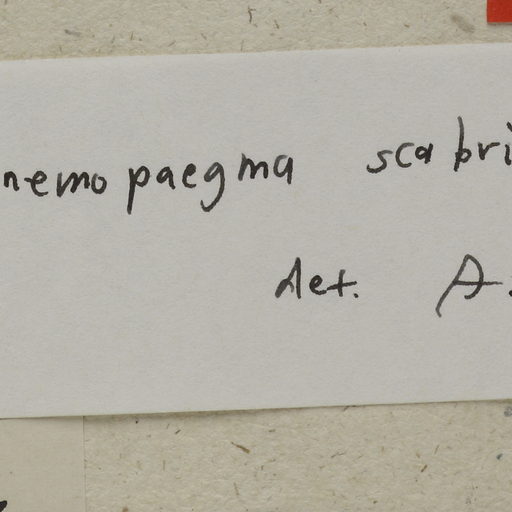 nemopaegma scabri
det. A.